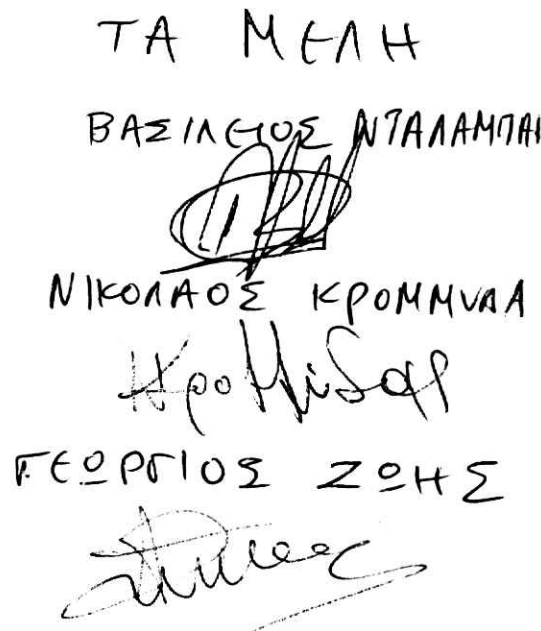 ΤΑ ΜΕΛΗ
ΒΑΣΙΛΕΙΟΣ ΝΤΑΛΑΜΠΑΙ
ΝΙΚΟΛΑΟΣ ΚΡΟΜΜΥΔΑ
ΓΕΩΡΓΙΟΣ ΖΩΗΣ